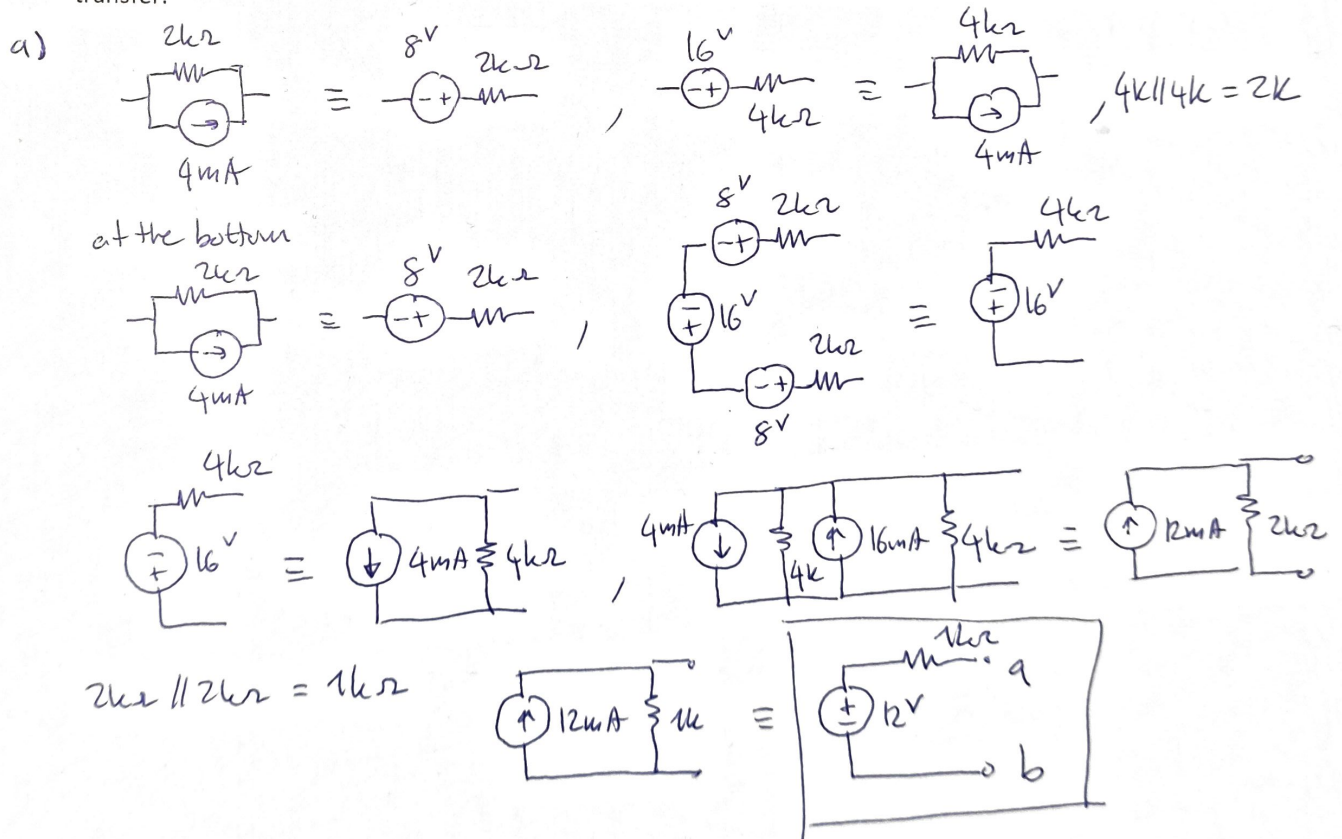 transfer.
a) 2kΩ 4mA ≡ 8V - + 2kΩ , 16V - + 4kΩ ≡ 4kΩ 4mA , 4k//4k = 2k
at the bottom
2kΩ 4mA ≡ 8V - + 2kΩ , 8V - + 2kΩ - + 16V - + 2kΩ 8V ≡ 4kΩ - + 16V
4kΩ - + 16V ≡ 4mA 4kΩ , 4mA 4k 16mA 4kΩ ≡ 12mA 2kΩ
2kΩ // 2kΩ = 1kΩ 12mA 1k ≡ 1kΩ a + - 12V b